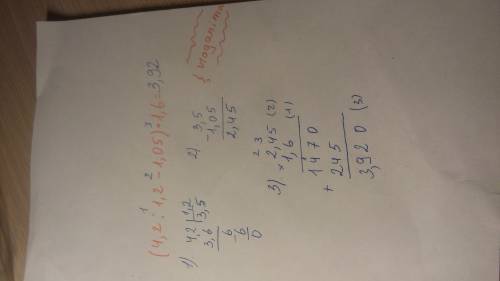 (4,2 : 1,2 - 1,05) · 1,6 = 3,92
1 2 3
1) 4,2 | 1,2
3,6 | 3,5
6
- 6
0
2) 3,5
- 1,05
2,45
3) 2 3
× 2,45 (2)
1,6 (1)
1470
+ 245
3,920 (3)